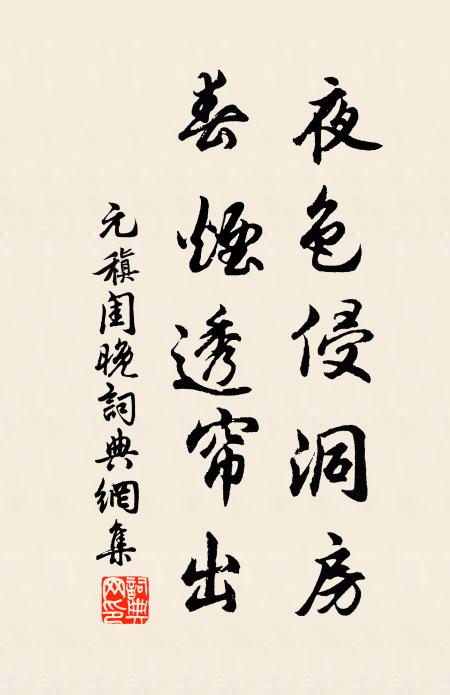 夜色侵洞房
春煙透帘出
元稹閨晚詞典網集
詞典网印